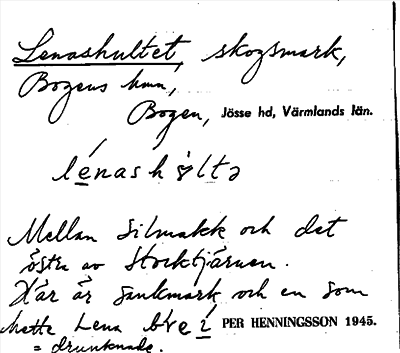 Lenashultet, skogsmark,
Bogens hmn,
Bogen, Jösse hd, Värmlands län.
Mellan Silmakk och det
östra av Stocktjärnen.
Här är sankmark, och en som
hette Lena PER HENNINGSSON 1945.
= drunknade.